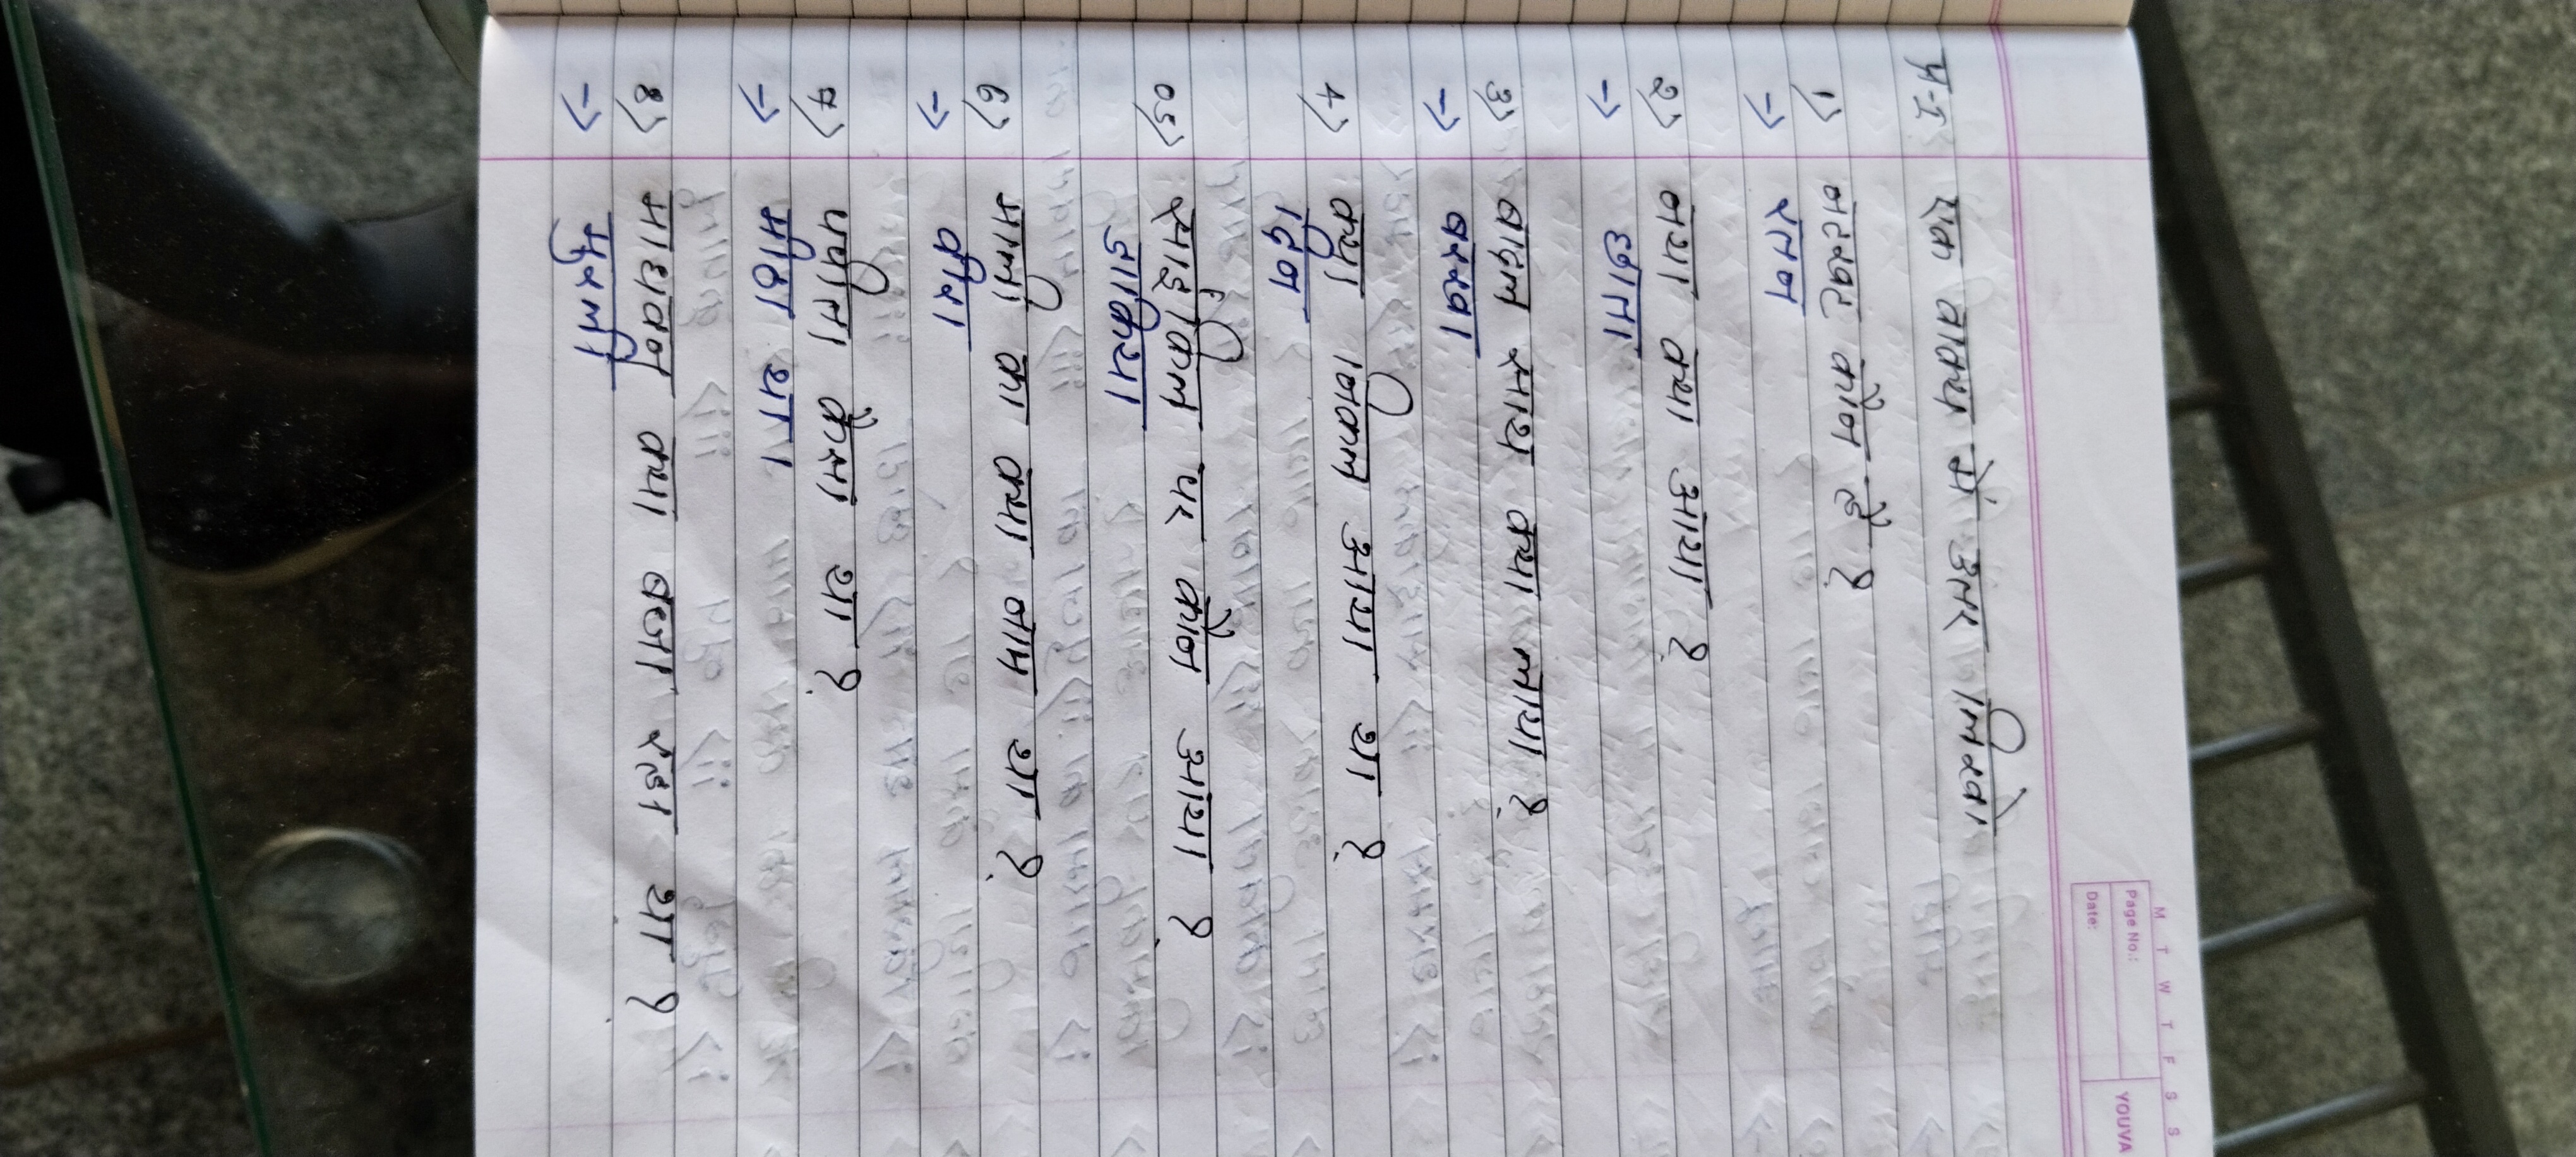 M T W T F S S
Page No.:
Date:
YOUVA
प्र-I एक वाक्य में उत्तर लिखो।
1) नटखट कौन है ?
→ रतन
2) नया क्या आया ?
→ छाता
3) बादल साथ क्या लाया ?
→ बरखा
4) क्या निकल आया था ?
दिन
05) साईकिल पर कौन आया ?
डाकिया
6) माली का क्या नाम था ?
→ वीरा
7) पपीता कैसा था ?
→ मीठा था।
8) माधवन क्या बजा रहा था ?
→ मुरली